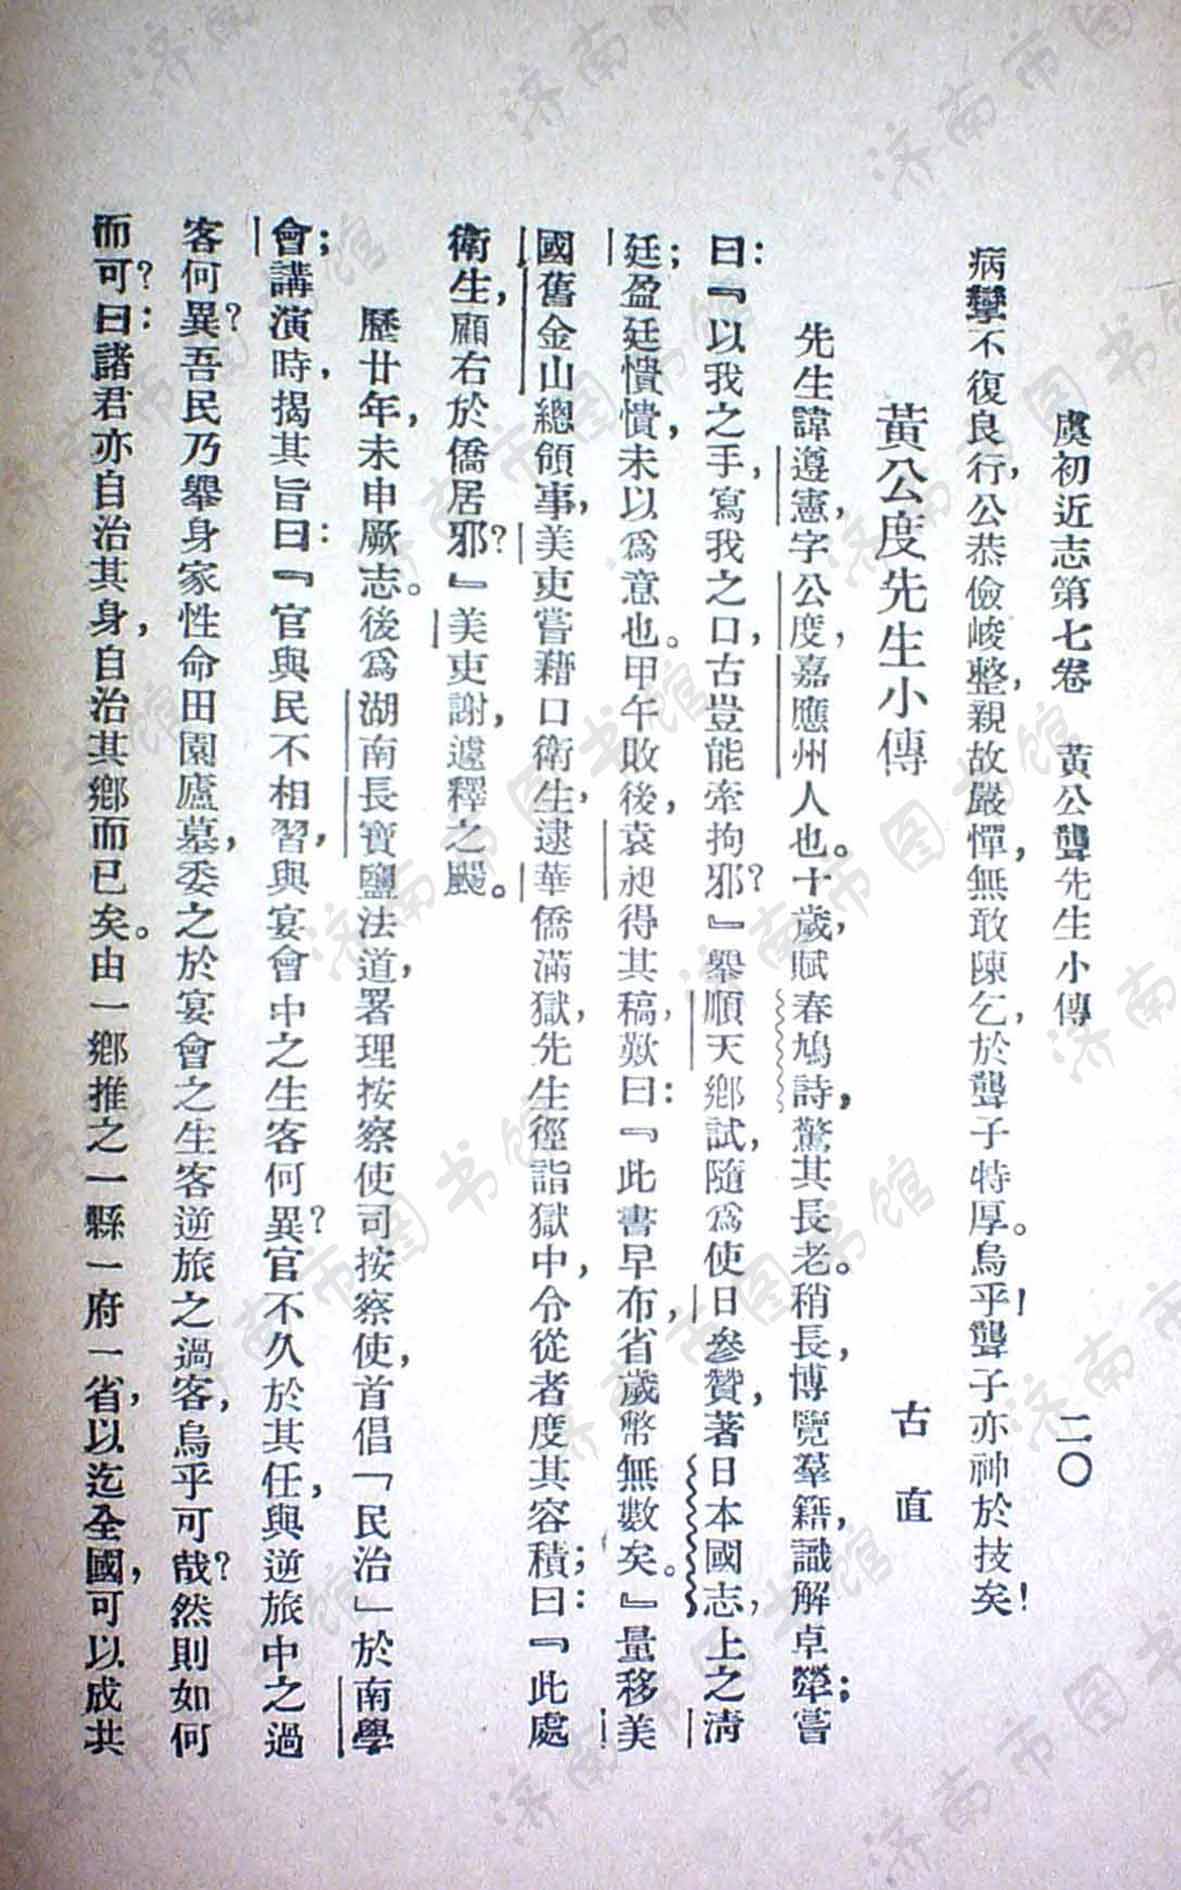 虞初近志第七卷　黃公聾先生小傳　二〇
病攣不復良行，公恭儉峻整，親故嚴憚，無敢陳乞，於聾子特厚。烏乎！聾子亦神於技矣！
黃公度先生小傳　古直
先生諱遵憲，字公度，嘉應州人也。十歲，賦春鳩詩，驚其長老。稍長，博覽羣籍，識解卓犖；嘗
曰：『以我之手，寫我之口，古豈能牽拘邪？』舉順天鄉試，隨爲使日參贊，著日本國志，上之淸
廷；盈廷憒憒，未以爲意也。甲午敗後，袁昶得其稿，歎曰：『此書早布，省歲幣無數矣。』量移美
國舊金山總領事，美吏嘗藉口衛生，逮華僑滿獄，先生徑詣獄中，令從者度其容積；曰：『此處
衛生，顧右於僑居邪？』美吏謝，遽釋之。
歷廿年，未申厥志。後爲湖南長寶鹽法道，署理按察使司按察使，首倡「民治」於南學
會；講演時，揭其旨曰：『官與民不相習，與宴會中之生客何異？官不久於其任，與逆旅中之過
客何異？吾民乃舉身家性命田園廬墓，委之於宴會之生客逆旅之過客，烏乎可哉？然則如何
而可？曰：諸君亦自治其身，自治其鄉而已矣。由一鄉推之一縣一府一省，以迄全國，可以成共
济南市图书馆